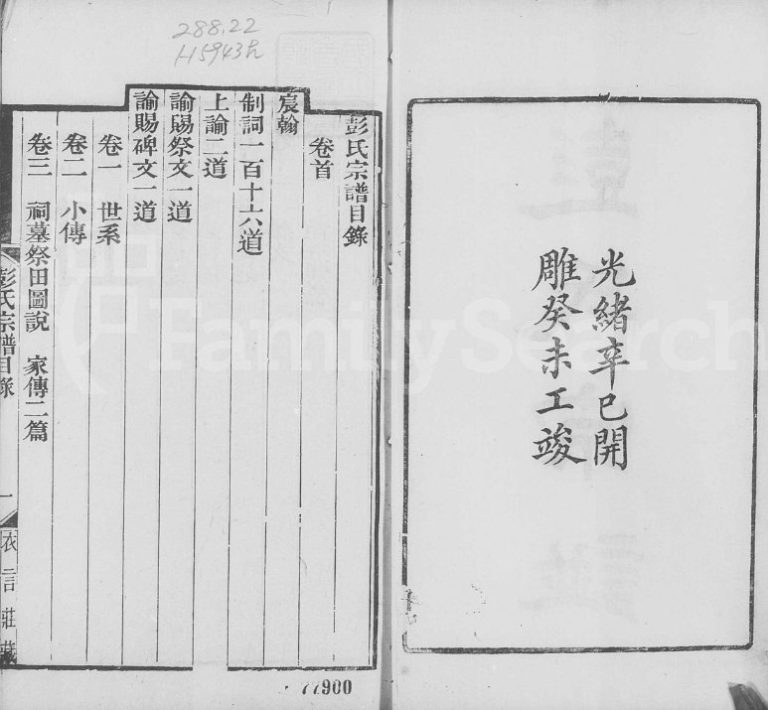 光緒辛巳開
雕癸未工竣
288.22
彭氏宗譜目錄
卷首
宸翰
制詞一百十六道
上諭二道
諭賜祭文一道
諭賜碑文一道
卷一 世系
卷二 小傳
卷三 祠墓祭田圖說 家傳二篇
彭氏宗譜目錄 一 衣言莊藏
77900
FamilySearch